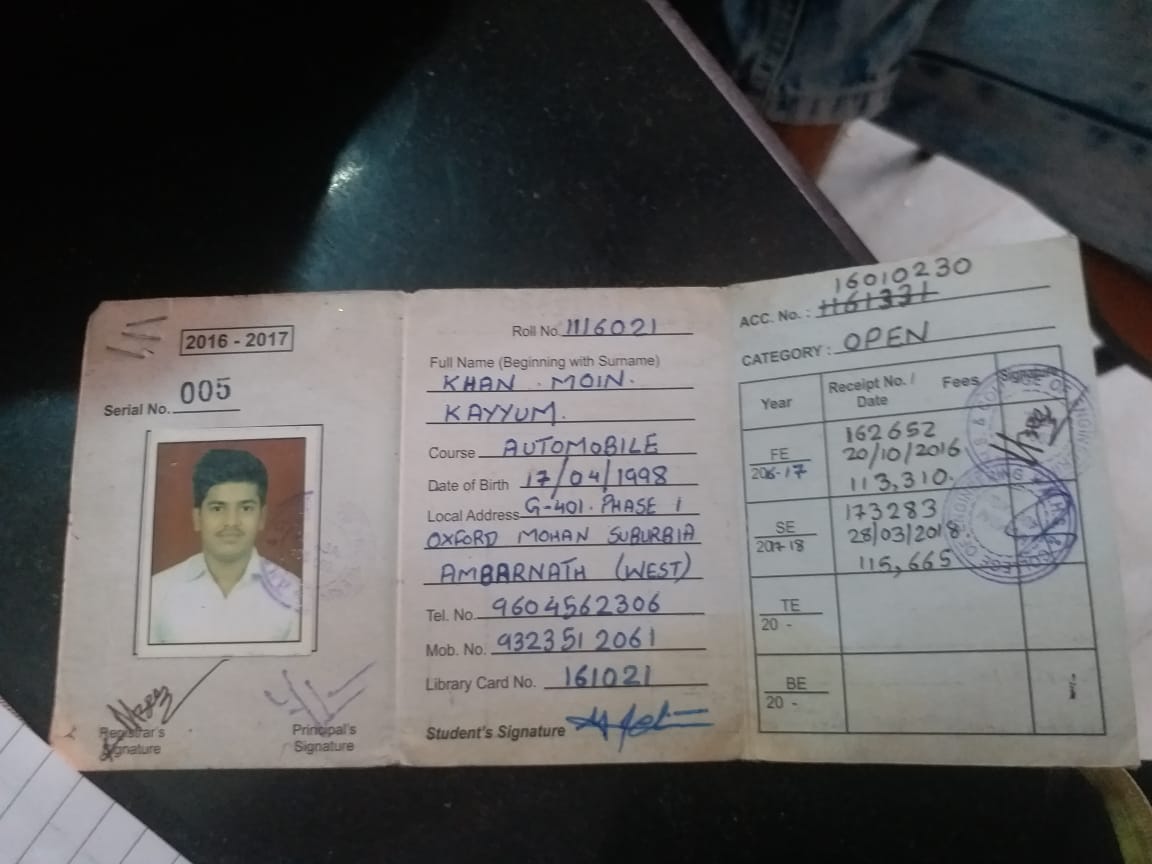 2016 - 2017
Serial No. 005
Registrar's
Signature
Principal's
Signature
Roll No. 1116021
Full Name (Beginning with Surname)
KHAN . MOIN.
KAYYUM.
Course AUTOMOBILE
Date of Birth 17/04/1998
Local Address G-401. PHASE 1
OXFORD MOHAN SUBURBIA
AMBARNATH (WEST)
Tel. No. 9604562306
Mob. No. 9323512061
Library Card No. 161021
Student's Signature
16010230
ACC. No. : 1161331
CATEGORY : OPEN
Year Receipt No. / Date Fees Signature
FE 2016-17 162652
20/10/2016
113,310.
SE 2017-18 173283
28/03/2018
115,665
TE
20 -
BE
20 -